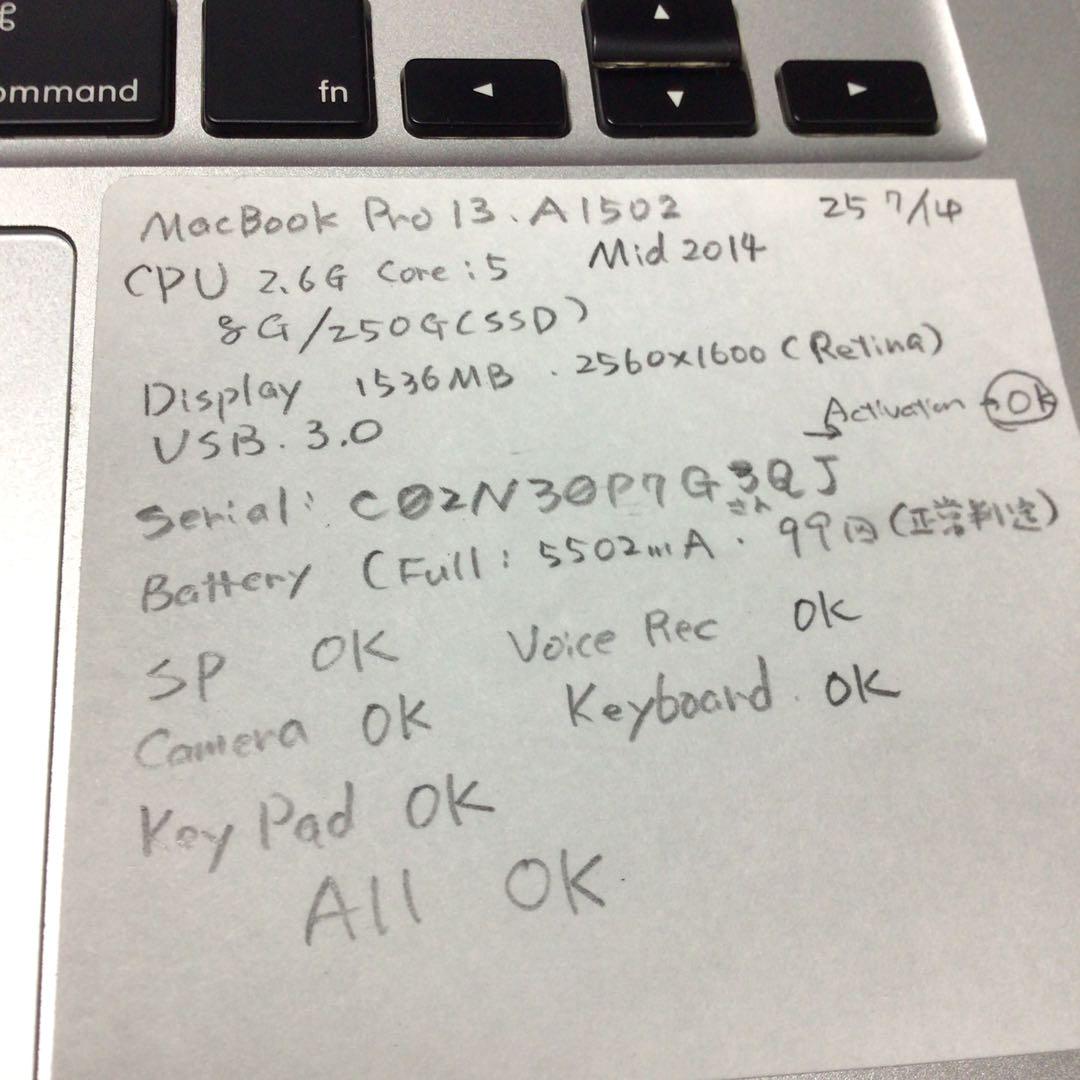 ⌘
ommand
fn
◀
▲
▼
▶
MacBook Pro 13. A1502 25 7/14
CPU 2.6G Core i5 Mid 2014
8G/250G(SSD)
Display 1536MB . 2560x1600 (Retina)
USB. 3.0
Activation → OK
Serial: C02N30P7G3QJ
さん
Battery (Full: 5502mA . 99回 (正常判定)
SP OK Voice Rec OK
Camera OK Keyboard. OK
Key Pad OK
All OK.